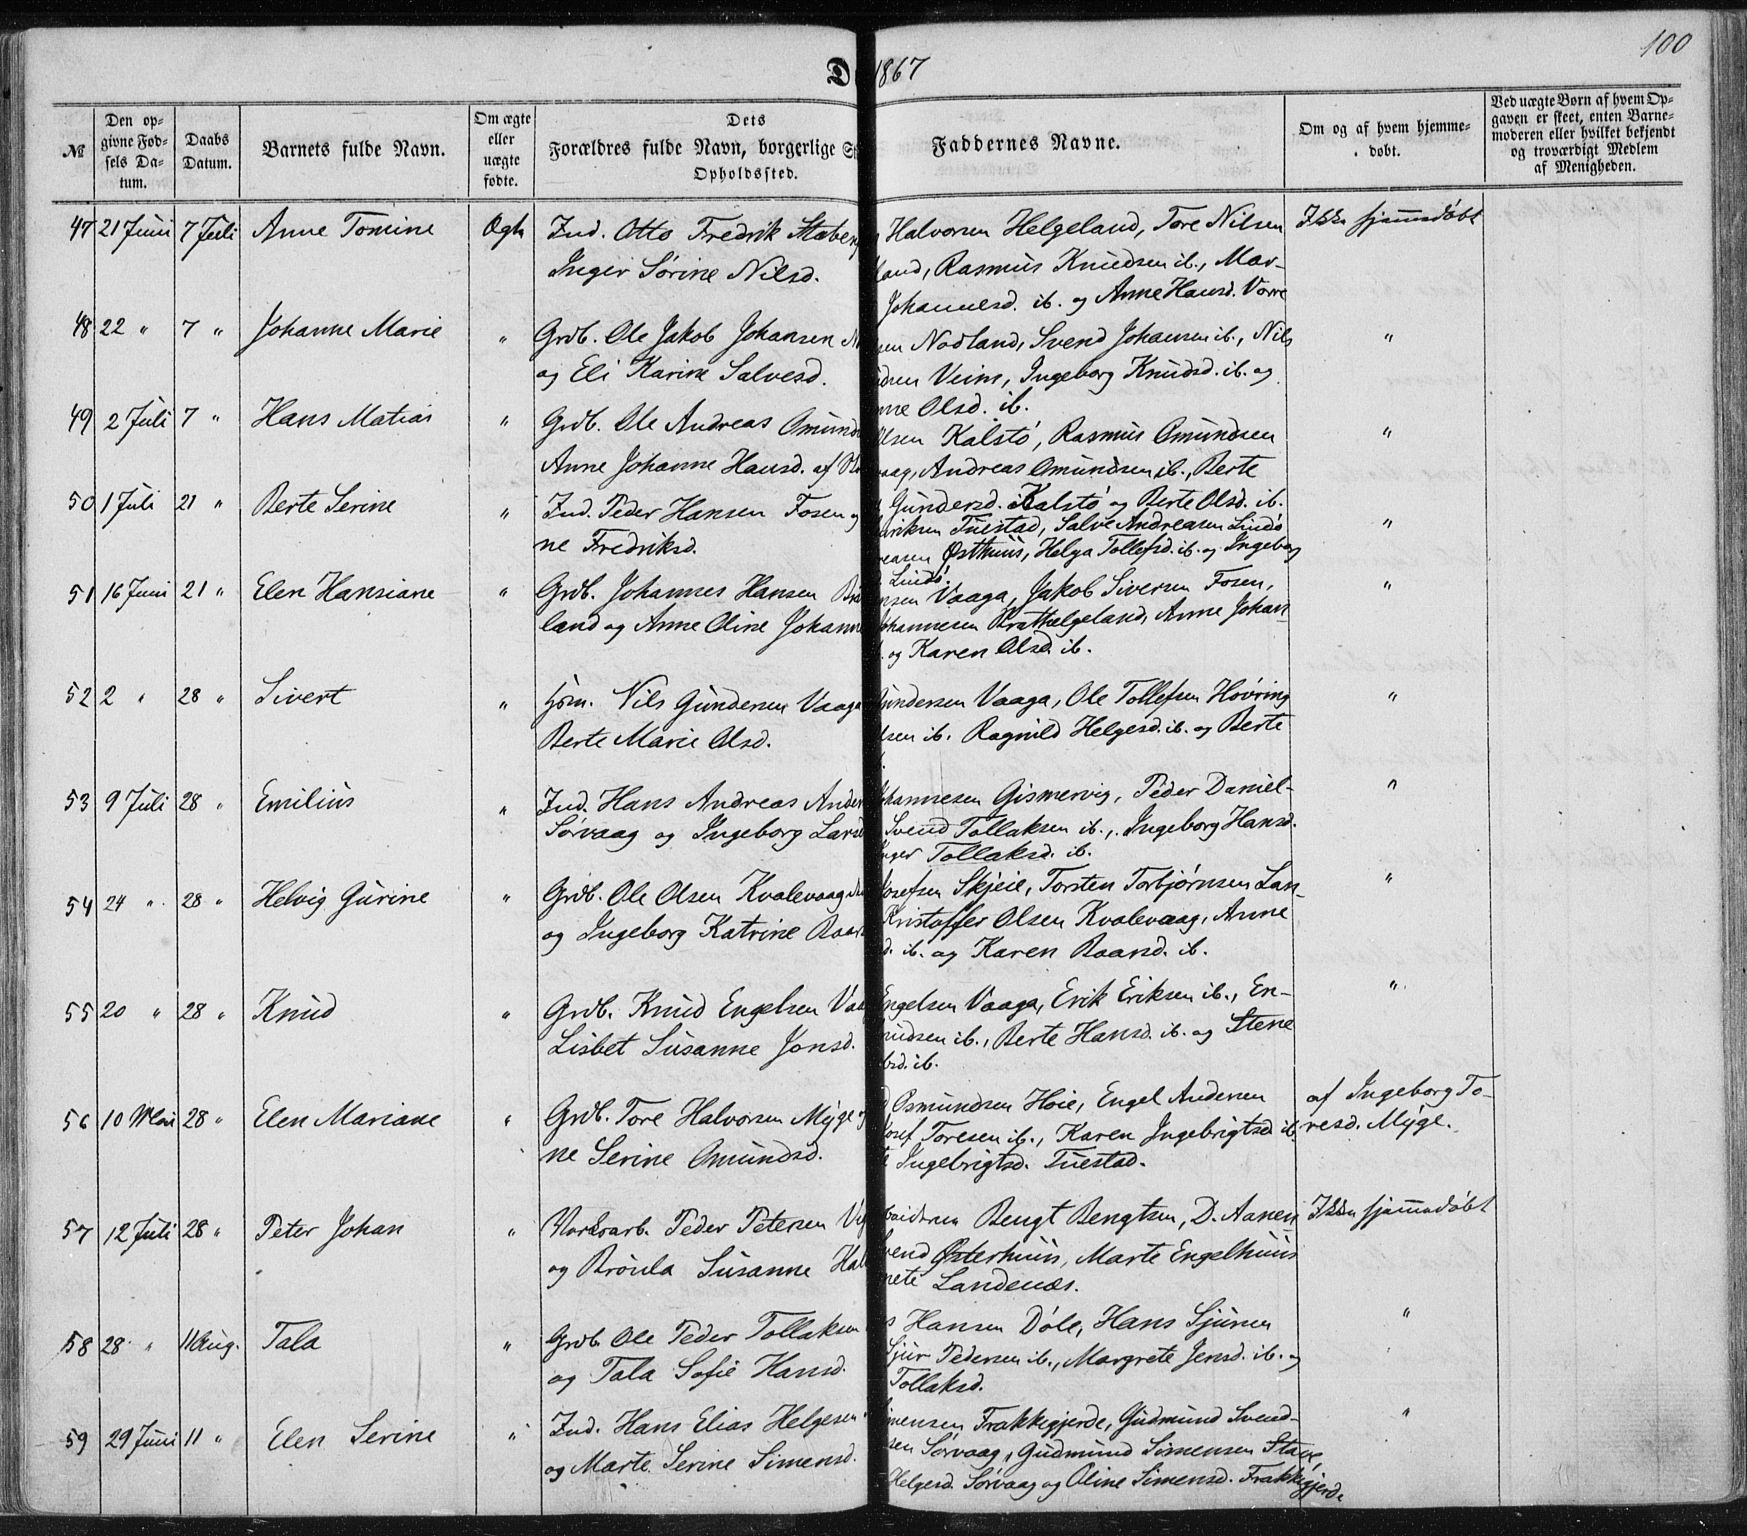 100
D 1867
№
Den opgivne Fødsels Datum.
Daabs Datum.
Barnets fulde Navn.
Om ægte eller uægte fødte.
Dets Forældres fulde Navn, borgerlige St Opholdssted.
Faddernes Navne.
Om og af hvem hjemmedøbt.
Ved uægte Børn af hvem Opgaven er skeet, enten Barnemoderen eller hvilket bekjendt og troværdigt Medlem af Menigheden.
47 21 Juni 7 Juli Anne Tomine Ægte Ind. Otto Fredrik Staben Halvorsen Helgeland, Tore Nilsen Ikke hjemmedøbt
Inger Sørine Nilsd. land, Rasmus Knudsen ib., Mar-
Johannesd. ib. og Anne Hansd. Vorre
48 22 " 7 " Johanne Marie " Grdb. Ole Jakob Johansen N sen Nodland, Svend Johansen ib., Nils "
og Eli Karine Salvesd. dsen Veim, Ingeborg Knudsd. ib. og
nne Olsd. ib.
49 2 Juli 7 " Hans Matias " Grdb. Ole Andreas Omunds Olsen Kalstø, Rasmus Omundsen "
Anne Johanne Hansd. af vaag, Andreas Omundsen ib., Berte
Gundersd. Kalstø og Berte Olsd. ib.
50 1 Juli 21 " Berte Serine " Ind. Peder Hansen Fosen og driksen Tuestad, Salve Andreasen Lindø "
ne Fredriksd. reasen Østhuus, Helga Tollefsd. ib. og Ingeborg
Lindø.
51 16 Juni 21 " Elen Hansiane " Grdb. Johannes Hansen Bra nsen Vaaga, Jakob Siversen Fosen, "
land og Anne Oline Johanne Johannesen Brathelgeland, Anne Johan
og Karen Olsd. ib.
52 2 " 28 " Sivert " Hjsm. Nils Gundersen Vaaga Gundersen Vaaga, Ole Tollefsen Høvring "
Berte Marie Olsd. lsen ib. Ragnild Helgesd. ib. og Berte
53 9 Juli 28 " Emilius " Ind. Hans Andreas Ander Johannesen Gismervig, Peder Daniel- "
Sørvaag og Ingeborg Larsd Svend Tollaksen ib., Ingeborg Hansd.
Inger Tollaksd. ib.
54 24 " 28 " Helvig Gurine " Grdb. Ole Olsen Kvalevaag Josefsen Skjeie, Torsten Torbjørnsen Lan- "
og Ingeborg Katrine Baar Kristoffer Olsen Kvalevaag, Anne
d. ib. og Karen Baard. ib.
55 20 " 28 " Knud " Grdb. Knud Engelsen Vaa Engelsen Vaaga, Erik Eriksen ib., En- "
Lisbet Susanne Jonsd. nudsen ib., Berte Hansd. ib. og Stene
bsd. ib.
56 10 Mai 28 " Elen Mariane " Grdb. Tore Halvorsen Myge Osmundsen Høie, Engel Andersen af Ingeborg To-
ne Serine Omundsd. Josef Toresen ib., Karen Ingebrigtsd ib resd. Myge.
Ingebrigtsd. Tuestad.
57 12 Juli 28 " Peter Johan " Værksarb. Peder Petersen Vi beideren Bengt Bengtsen, D. Aanen Ikke hjemmedøbt
og Brøula Susanne Hal vend Østerhuus, Marte Engelhuus
nete Landenæs.
58 28 " 11 Aug. Tala " Grdb. Ole Peder Tollaksen s Hansen Døle, Hans Sjursen "
og Tala Sofie Hansd. Sjur Pedersen ib., Margrete Jensd. ib. og
Tollaksd.
59 29 Juni 11 " Elen Serine " Ind. Hans Elias Helgesen imensen Trakkegjerde, Gudmund Svend- "
og Marte Serine Simensd. sen Sørvaag, Gudmund Simensen Stave,
Helgesd. Sørvaag og Oline Simensd. Trakkegjerde